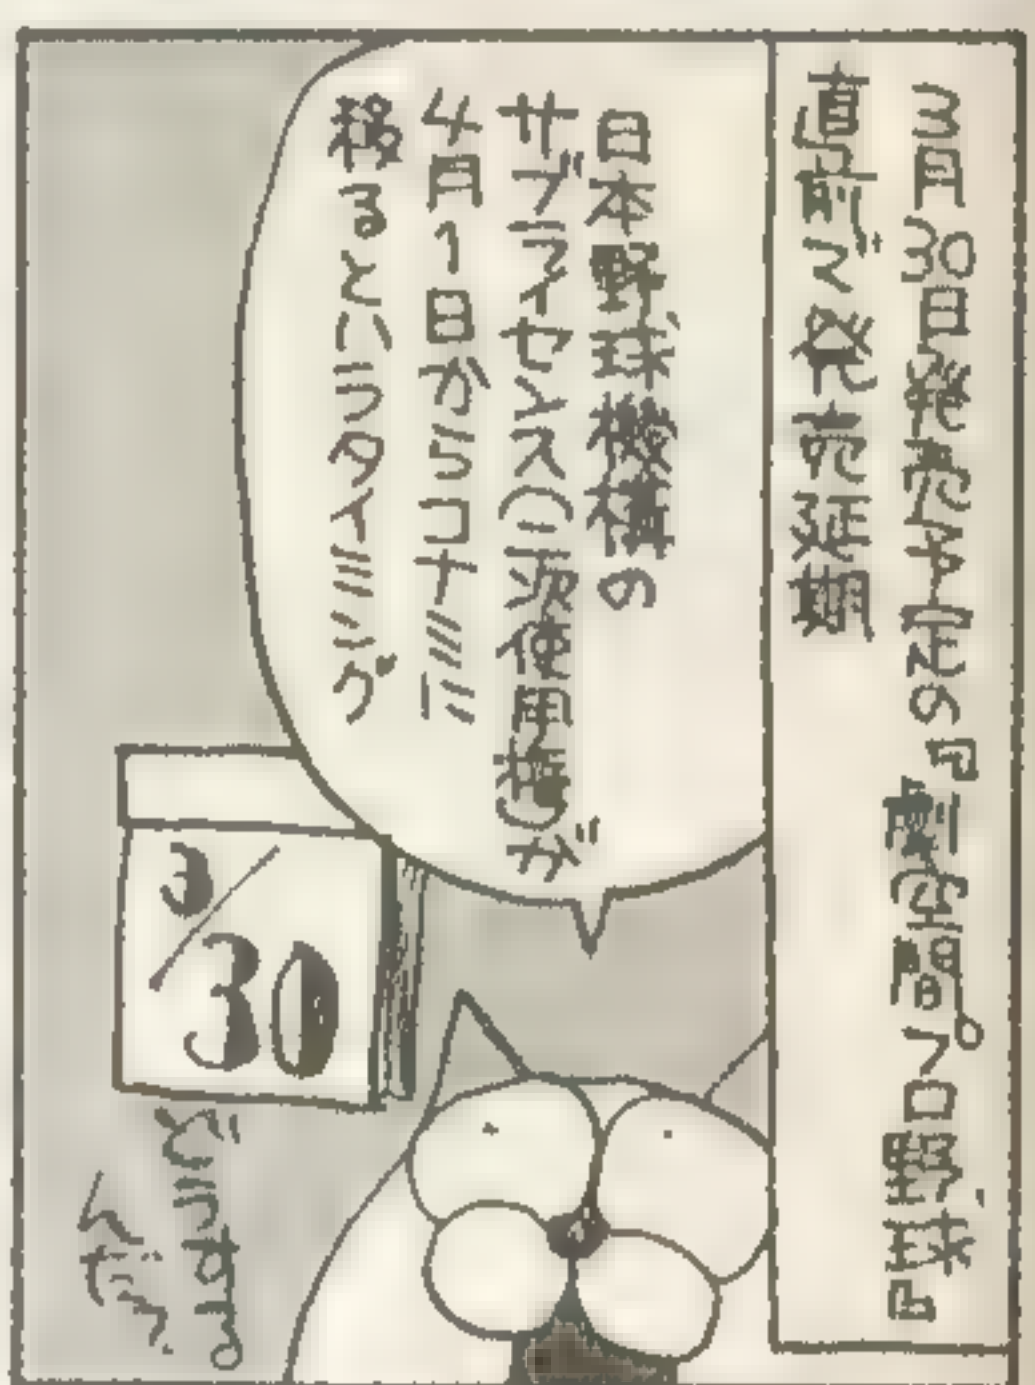 3月30日発売予定の『劇空間プロ野球』
直前で発売延期
日本野球機構の
サブライセンス(二次使用権)が
4月1日からコナミに
移るというタイミング
3/30
どうする
んだっ